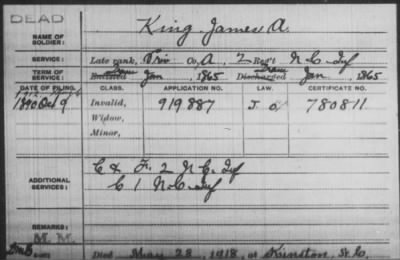 DEAD
NAME OF SOLDIER: King James A.
SERVICE: Late rank, Priv Co. A, 2 Reg't N C Inf
TERM OF SERVICE: Enlisted Jan, 1865 Discharged Jan, 1865
DATE OF FILING. CLASS. APPLICATION NO. LAW. CERTIFICATE NO.
1890 Oct 9 Invalid, 919887 780811
Widow,
Minor,
ADDITIONAL SERVICES: C & F. 2 N C Inf
C 1 N.C. Inf
REMARKS:
Died May 28, 1918, at Kinston N.C.